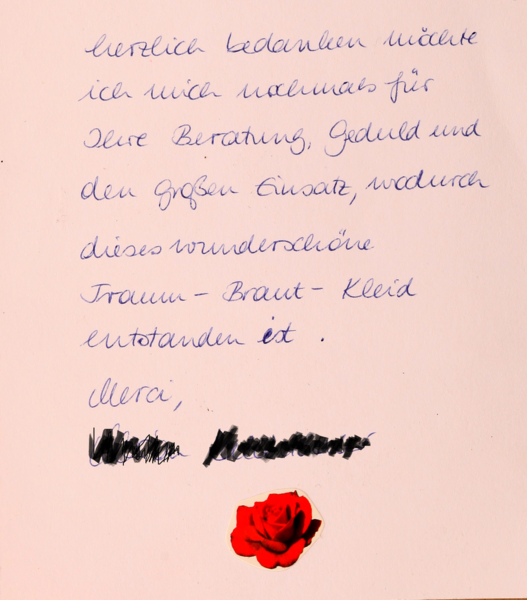 herzlich bedanken möchte
ich mich nochmals für
Ihre Beratung, Geduld und
den großen Einsatz, wodurch
dieses wunderschöne
Traum - Braut - Kleid
entstanden ist .
Merci,